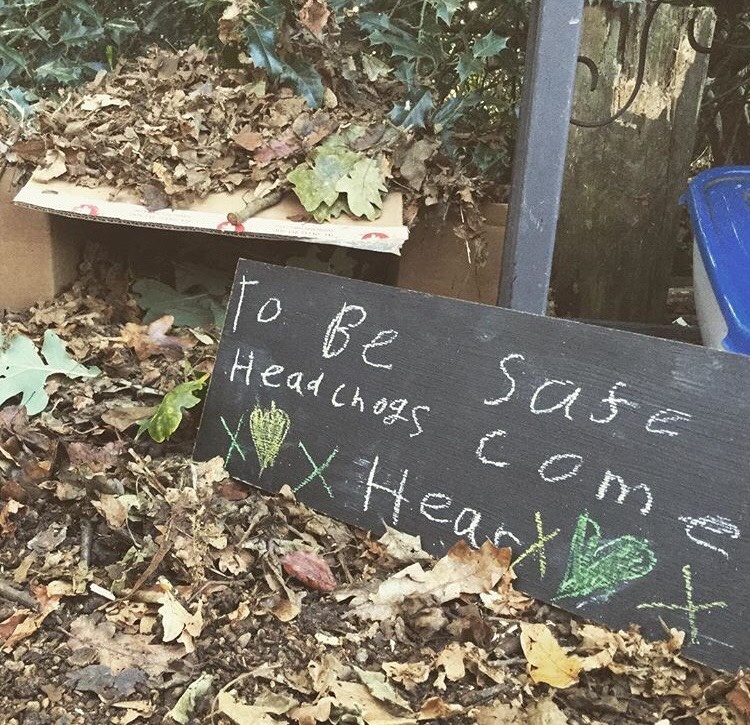 To Be Safe
Headchogs come
X X Hear X X